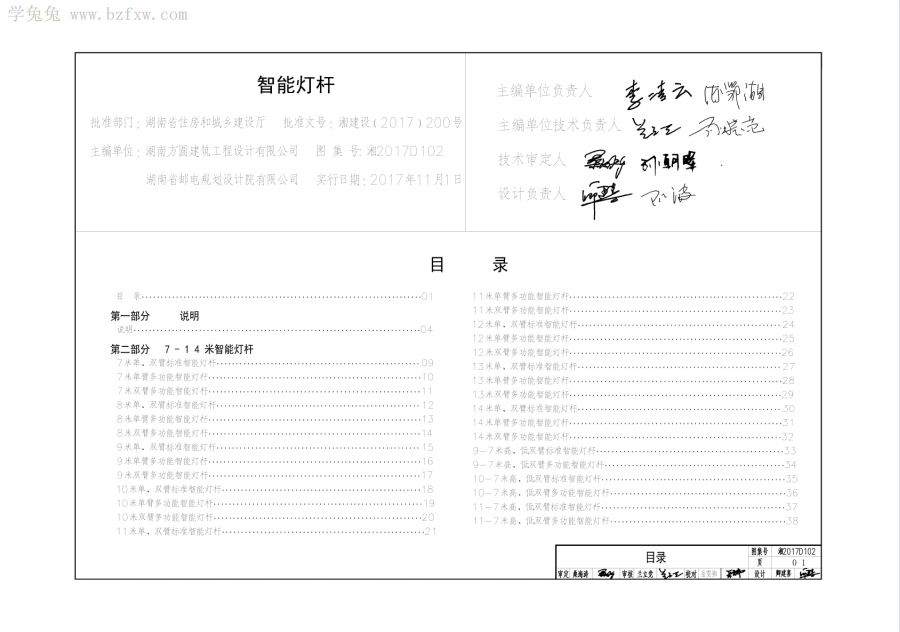 学兔兔 www.bzfxw.com
智能灯杆
批准部门：湖南省住房和城乡建设厅 批准文号：湘建设（2017）200号
主编单位：湖南方圆建筑工程设计有限公司 图 集 号：湘2017D102
湖南省邮电规划设计院有限公司 实行日期：2017年11月1日
主编单位负责人
主编单位技术负责人
技术审定人 刘朝晖
设计负责人
目 录
目 录 01
第一部分 说明
说明 04
第二部分 7-14 米智能灯杆
7米单、双臂标准智能灯杆 09
7米单臂多功能智能灯杆 10
7米双臂多功能智能灯杆 11
8米单、双臂标准智能灯杆 12
8米单臂多功能智能灯杆 13
8米双臂多功能智能灯杆 14
9米单、双臂标准智能灯杆 15
9米单臂多功能智能灯杆 16
9米双臂多功能智能灯杆 17
10米单、双臂标准智能灯杆 18
10米单臂多功能智能灯杆 19
10米双臂多功能智能灯杆 20
11米单、双臂标准智能灯杆 21
11米单臂多功能智能灯杆 22
11米双臂多功能智能灯杆 23
12米单、双臂标准智能灯杆 24
12米单臂多功能智能灯杆 25
12米双臂多功能智能灯杆 26
13米单、双臂标准智能灯杆 27
13米单臂多功能智能灯杆 28
13米双臂多功能智能灯杆 29
14米单、双臂标准智能灯杆 30
14米单臂多功能智能灯杆 31
14米双臂多功能智能灯杆 32
9-7米高、低双臂标准智能灯杆 33
9-7米高、低双臂多功能智能灯杆 34
10-7米高、低双臂标准智能灯杆 35
10-7米高、低双臂多功能智能灯杆 36
11-7米高、低双臂标准智能灯杆 37
11-7米高、低双臂多功能智能灯杆 38
目录
图集号 湘2017D102
页 01
审定 审核 校对 设计